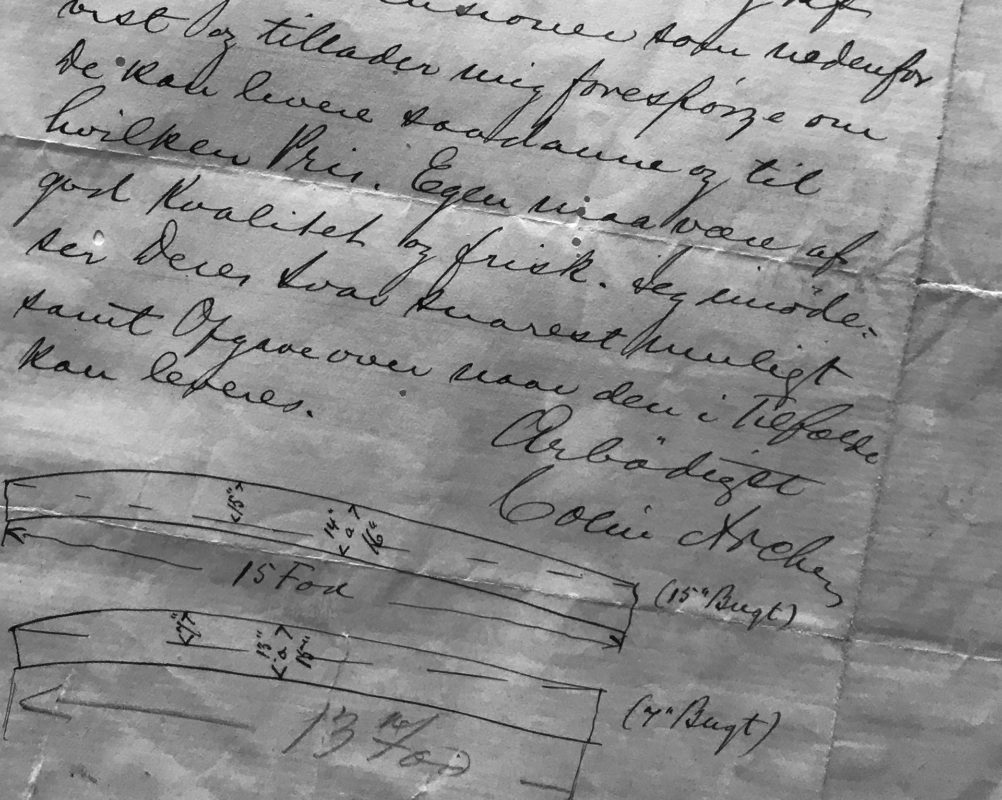 som nedenfor
vist og tillader mig forespörge om
De kan levere saadanne og til
hvilken Pris. Egen maa være af
god Kvalitet og frisk. Jeg imöde-
ser Deres Svar snarest muligt
samt Opgave over naar den i Tilfælde
kan leveres.
Arbödigst
Colin Archer
15"
14" a 16"
15 Fod
(15" Bugt)
7"
13" a 15"
13 Fod
(7" Bugt)